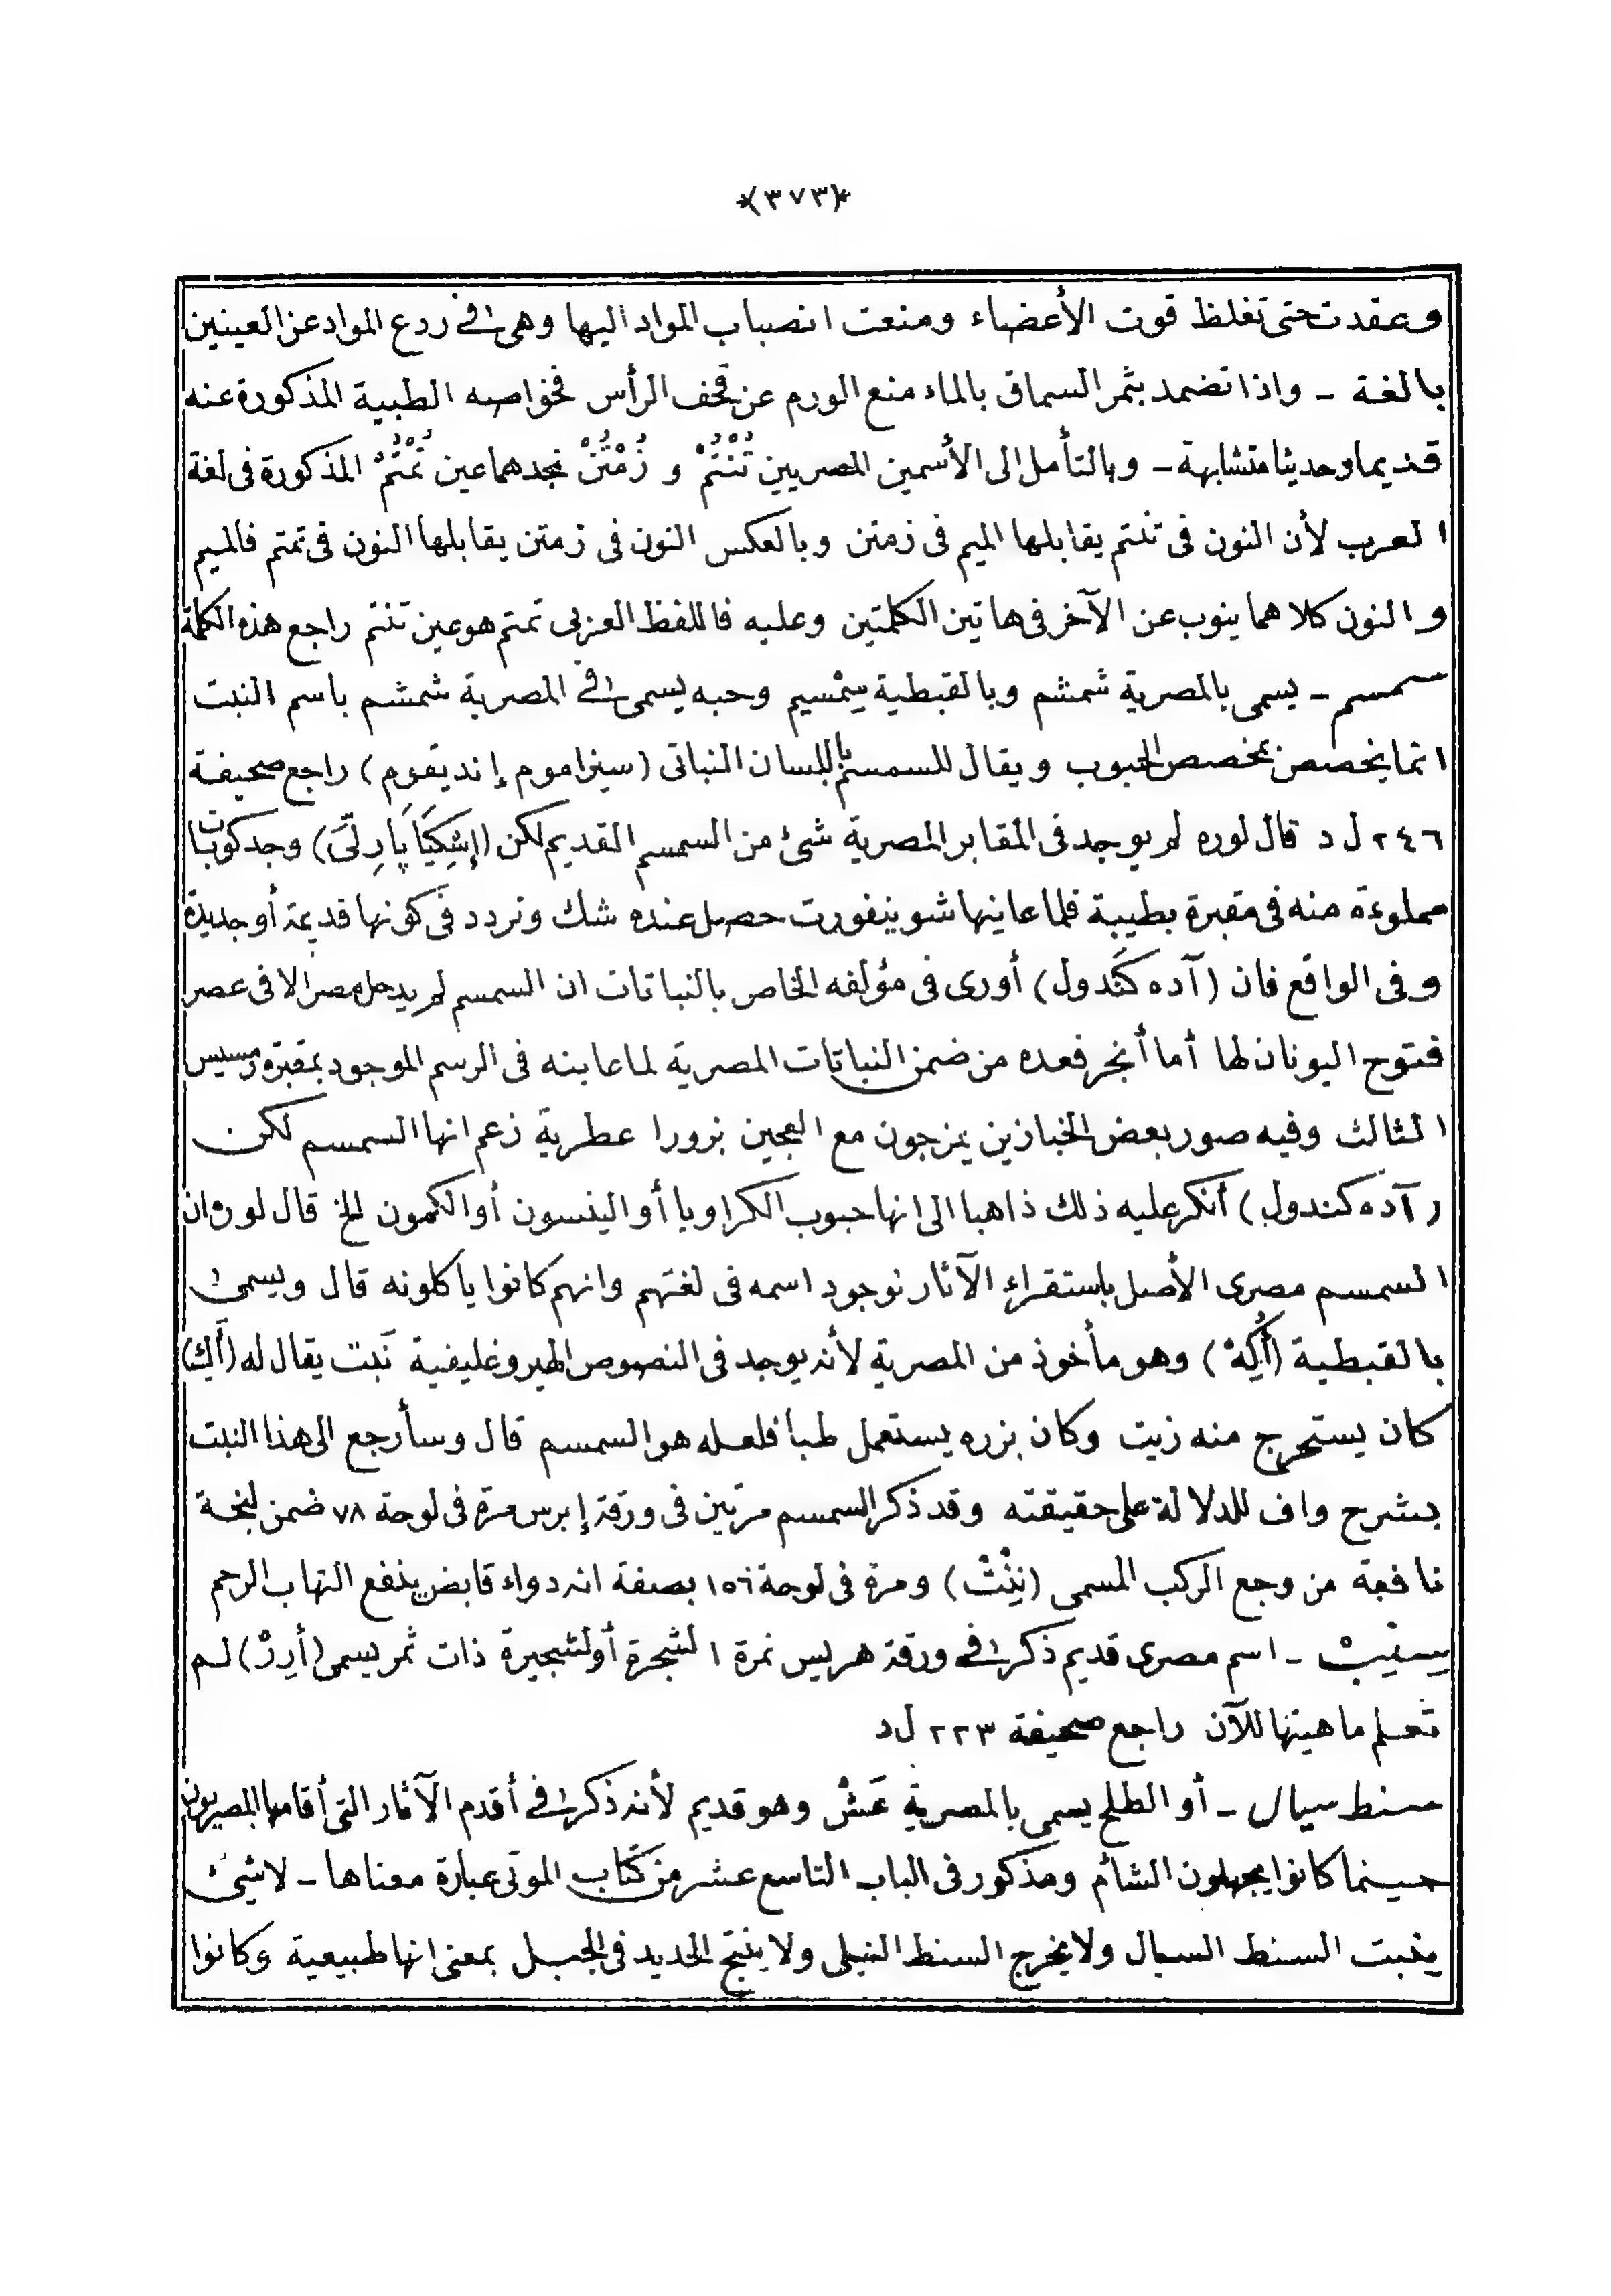 *(٣٧٣)*
وعقدت حتى تغلظ قوت الأعضاء ومنعت انصباب المواد اليها وهى فى ردع المواد عن العينين
بالغة - واذا تضمد بثمر السماق بالماء منع الورم عن قحف الرأس فخواصه الطبية المذكورة عنه
قديما وحديثا متشابهة - وبالتأمل الى الأسمين المصريين تُنْتُمْ و زُمْتُنْ نجدهما عين تُمْتُمْ المذكورة فى لغة
العرب لأن النون فى تنتم يقابلها الميم فى زمتن وبالعكس النون فى زمتن يقابلها النون فى تمتم فالميم
والنون كلاهما ينوب عن الآخر فى هاتين الكلمتين وعليه فاللفظ العربى تمتم هو عين تنتم راجع هذه الكلمة
سمسم - يسمى بالمصرية شمشم وبالقبطية سِمْسِيم وحبه يسمى فى المصرية شمشم باسم النبت
انما يخصص بمخصص الحبوب ويقال للسمسم باللسان النباتى (سيزاموم إنديقوم) راجع صحيفة
٢٤٦ ل د قال لوره لم يوجد فى المقابر المصرية شئ من السمسم القديم لكن (إِشِكِيَا پَارِلِّى) وجد كوبات
مملوءة منه فى مقبرة بطيبة فلما عاينها شوينفورت حصل عنده شك وتردد فى كونها قديمة أو جديدة
وفى الواقع فان (آده كَنْدول) أورى فى مؤلفه الخاص بالنباتات ان السمسم لم يدخل مصر الا فى عصر
فتوح اليونان لها أما أنجر فعده من ضمن النباتات المصرية لما عاينه فى الرسم الموجود بمقبرة رمسيس
الثالث وفيه صور بعض الخبازين يمزجون مع العجين بزورا عطرية زعم انها السمسم لكن
(آده كندول) أنكر عليه ذلك ذاهبا الى انها حبوب الكراويا أو الينسون أو الكمون الخ قال لوره ان
السمسم مصرى الأصل باستقراء الآثار لوجود اسمه فى لغتهم وانهم كانوا ياكلونه قال ويسمى
بالقبطية (أُكِهْ) وهو مأخوذ من المصرية لأنه يوجد فى النصوص الهيروغليفية نبت يقال له (أَكِ)
كان يستخرج منه زيت وكان بزره يستعمل طبا فلعله هو السمسم قال وسأرجع الى هذا النبت
بشرح واف للدلالة على حقيقته وقد ذكر السمسم مرتين فى ورقة إبرس مرة فى لوحة ٧٨ ضمن لبخة
نافعة من وجع الركب المسمى (نِثِثْ) ومرة فى لوحة ١٥٦ بصفة انه دواء قابض ينفع التهاب الرحم
سِنِبْ - اسم مصرى قديم ذكر فى ورقة هريس نمرة ١ لشجرة أو لشجيرة ذات ثمر يسمى (أرِزْ) لم
تعلم ماهيتها للآن راجع صحيفة ٢٢٣ ل د
سنط سيال - أو الطلح يسمى بالمصرية عَشْ وهو قديم لأنه ذكر فى أقدم الآثار التى أقامها المصريون
حينما كانوا يجهلون الشأم ومذكور فى الباب التاسع عشر من كتاب الموتى عبارة معناها - لا شئ
ينبت السنط السيال ولا يخرج السنط النيلى ولا ينتج الحديد فى الجبل بمعنى انها طبيعية وكانوا